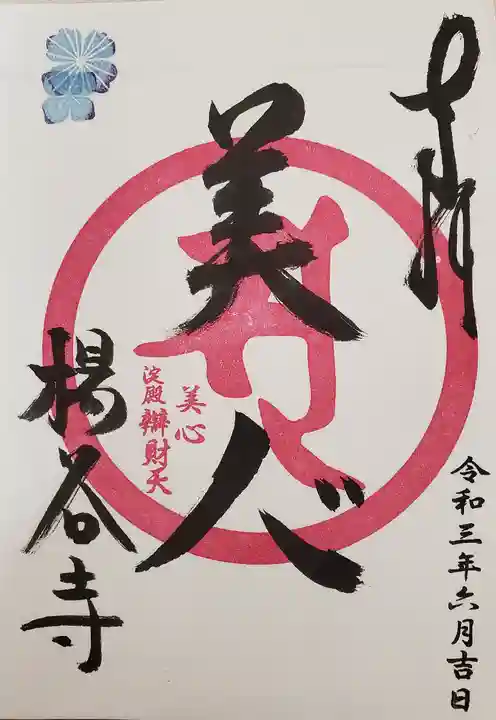 奉拝
美人
美心
淀殿辨財天
楊谷寺
令和三年六月吉日